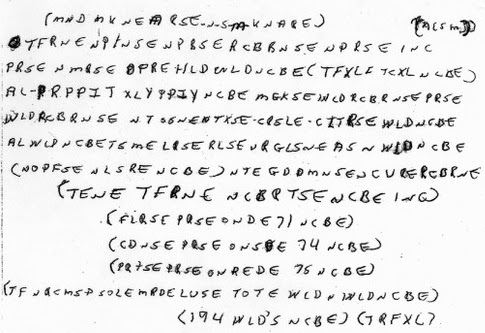 (MND MKNEARSE-N-S-M-KNARE) (ACSM)
TFRNE NPINSE NPBSE RCBRNSE NPRSE INC
PRSE NMRSE OPRE HLD WLD NCBE (TFXLF TCXL NCBE)
AL-PRPPIT XLY PPIY NCBE MGKSE WLD RCBRNSE PRSE
WLD RCBRNSE NTSSNENTXSE-CRSLE-CITRSE WLD NCBE
ALWLD NCBE TSMELRSE RLSE NRGLSNE ASN WLD NCBE
(NOPFSE NLSRE NCBE) NTE GDDMNSE NCURE RCBRNE
(TENE TFRNE NCBRTSE NCBE INC)
(FLRSE PRSE ONDE 71 NCBE)
(CDNSE PRSE ONSDE 74 NCBE)
(PRTSE PRSE ONREDE 75 NCBE)
(TFNRCMSP SOLE MRDE LUSE TOTE WLD N WLD NCBE)
(194 WLD'S NCBE) (TRFXL)